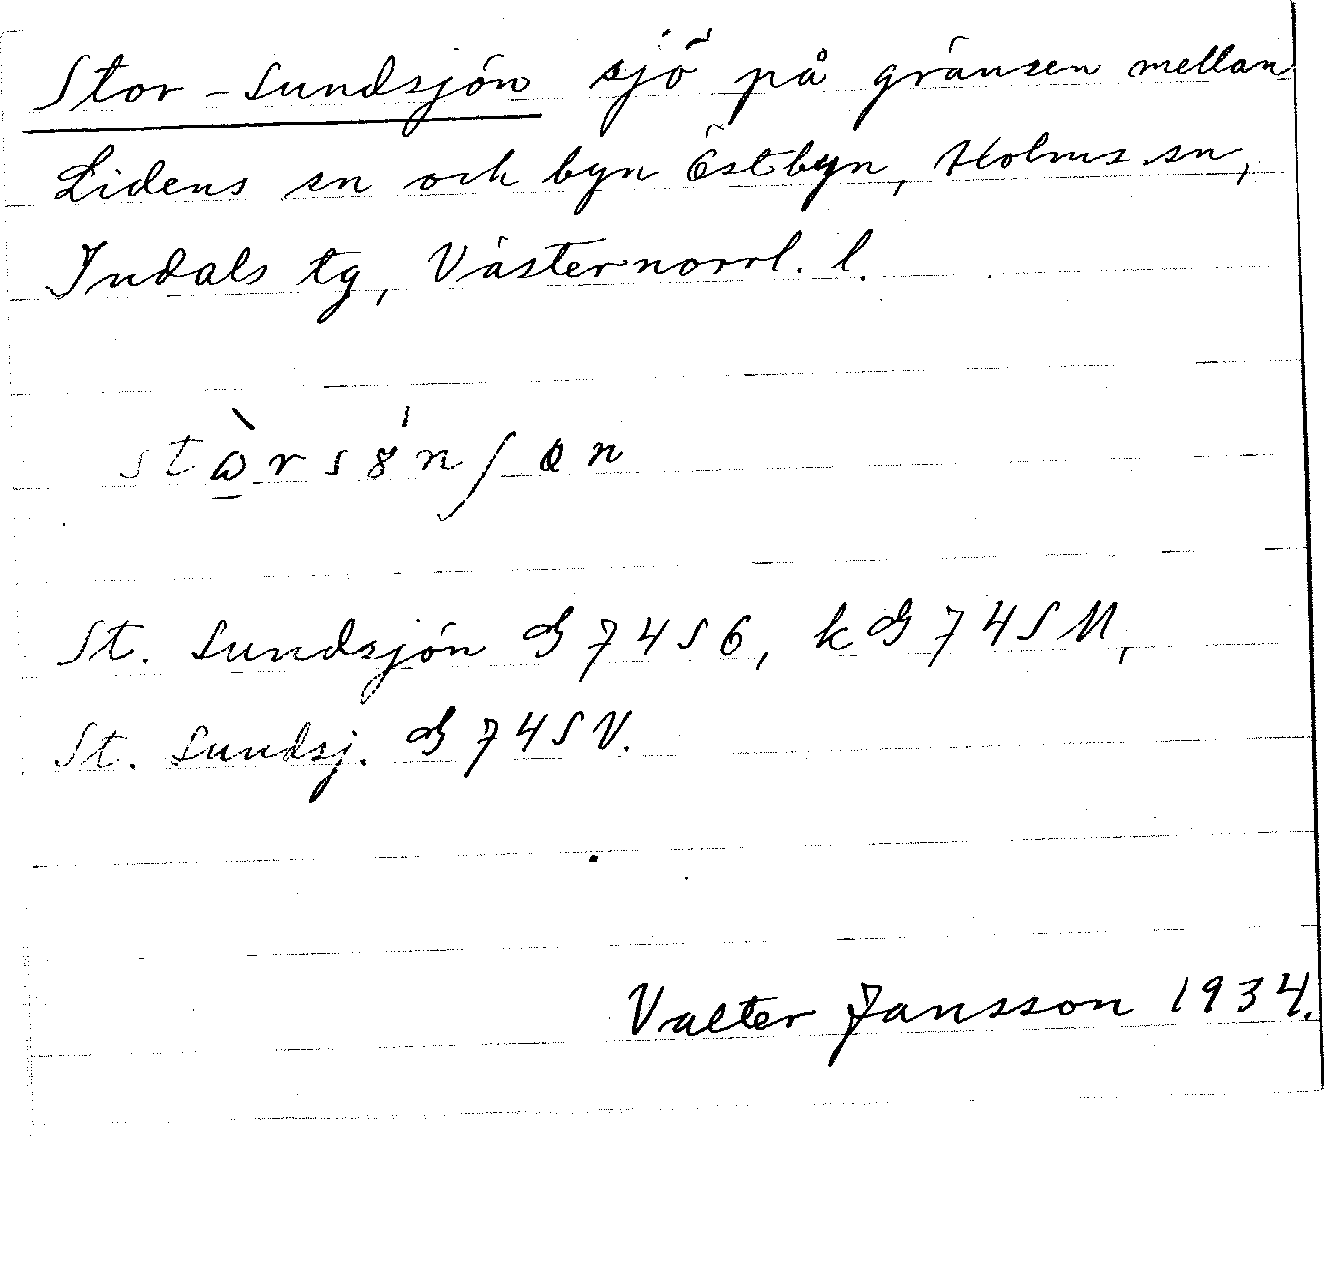 Stor-Sundsjön sjö på gränsen mellan
Lidens sn och byn Östbyn, Holms sn,
Indals tg, Västernorrl. l.
St. Sundsjön 74 S6, k 74 SM,
St. Sundsj. 74 SV.
Valter Jansson 1934.